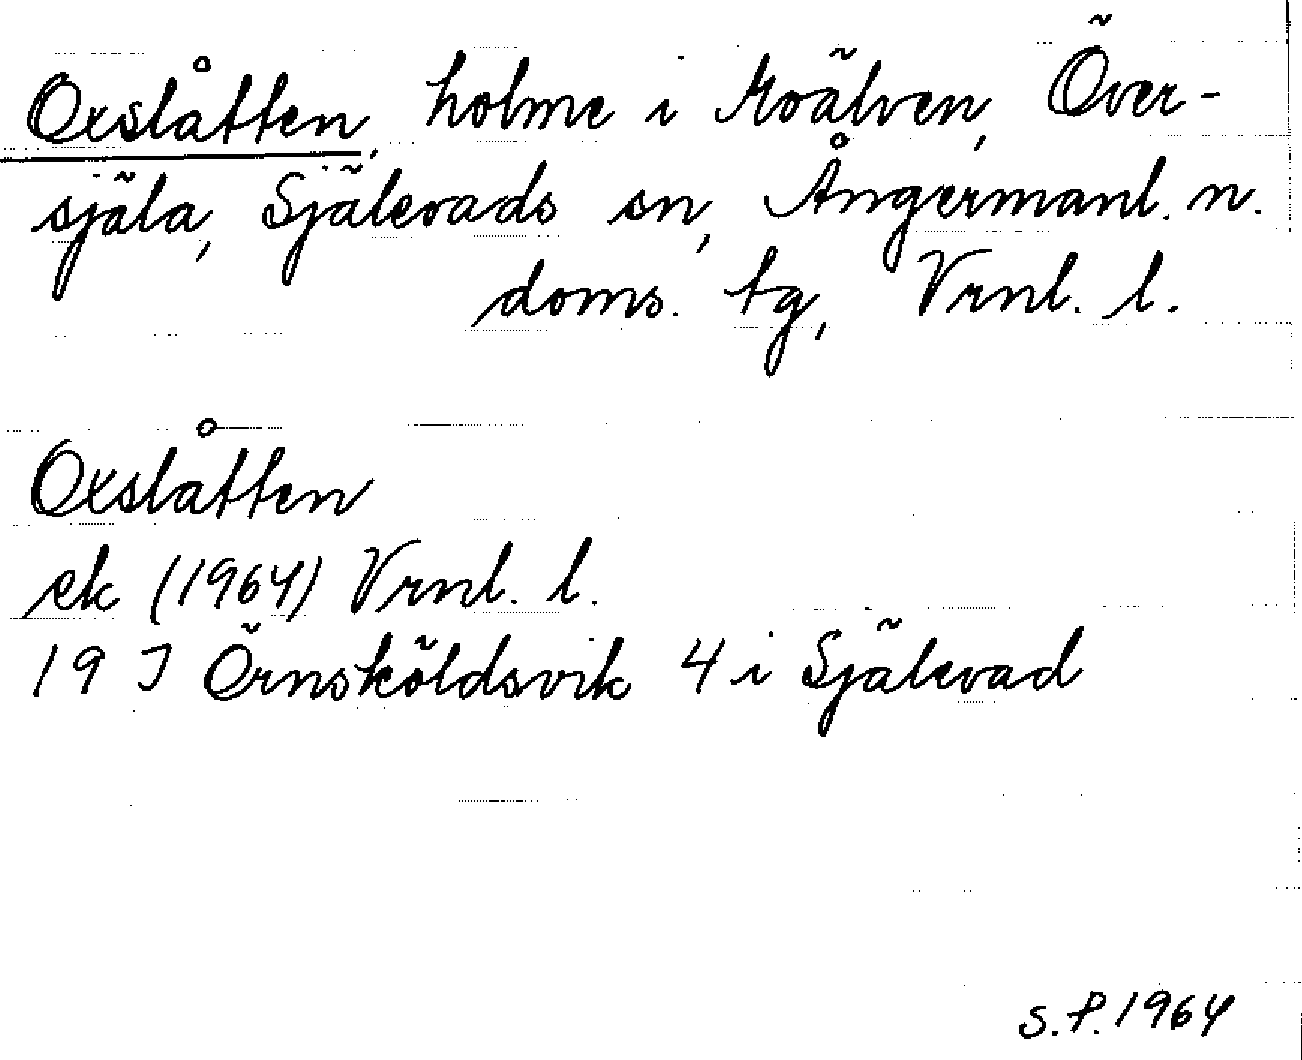 Oxslåtten, holme i Moälven, Över-
själa, Själevads sn, Ångermanl. n.
doms. tg, Vrnl. l.
Oxslåtten
ek (1964) Vrnl. l.
19 J Örnsköldsvik 4 i Själevad
S.P. 1964